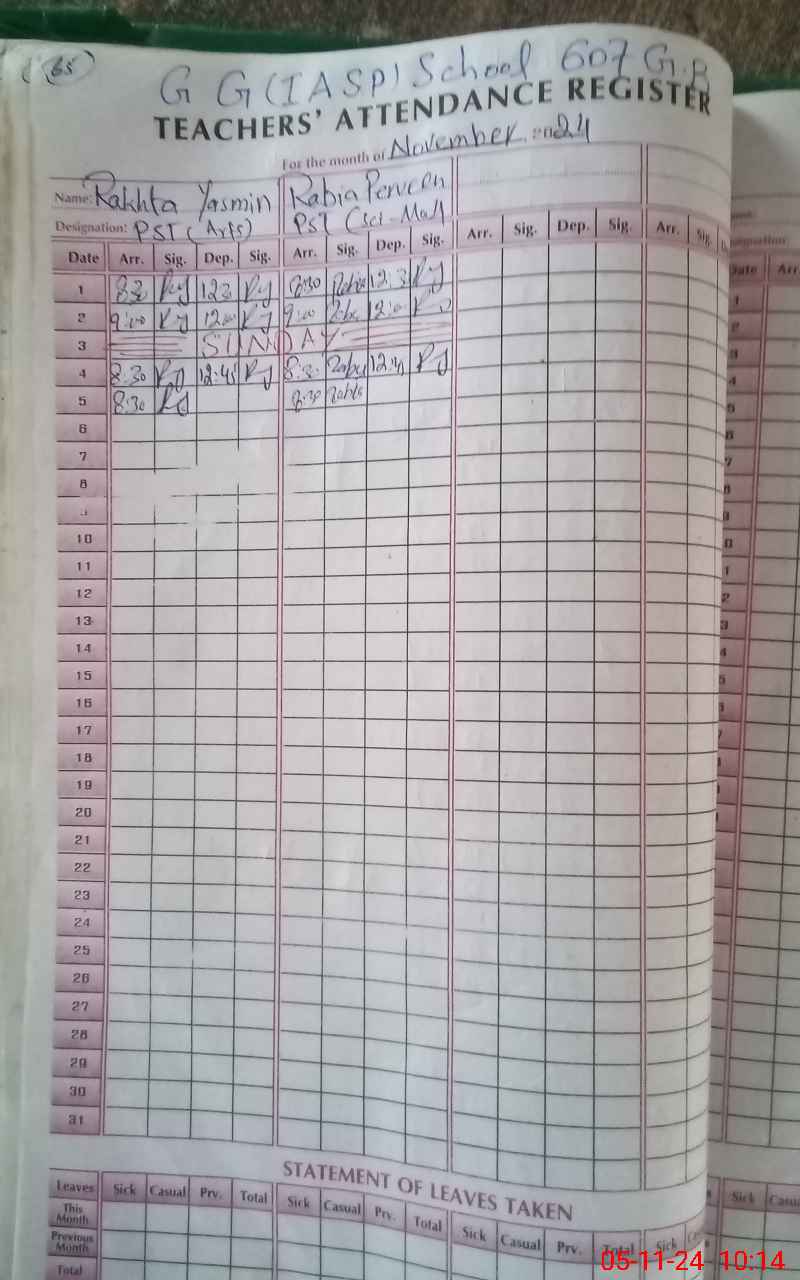 65
G G (IASP) School 607 G.B
TEACHERS' ATTENDANCE REGISTER
For the month of November 2024
Name: Rakhta Yasmin Rabia Perveen
Designation: PST (Arts) PST (Sci-Mat)
Date Arr. Sig. Dep. Sig. Arr. Sig. Dep. Sig. Arr. Sig. Dep. Sig. Arr. Sig.
1 8:30 12:3 8:30 Rabia 12:3
2 9:00 12:00 9:00 12:0
3 SUNDAY
4 8:30 12:45 8:3 12:4
5 8:30 8:30 Rabia
6
7
8
10
11
12
13
14
15
16
17
18
19
20
21
22
23
24
25
26
27
28
29
30
31
STATEMENT OF LEAVES TAKEN
Leaves Sick Casual Prv. Total Sick Casual Prv. Total Sick Casual Prv. Total Sick
This Month
Previous Month
Total
Date Arr
Sick Casu
05-11-24 10:14